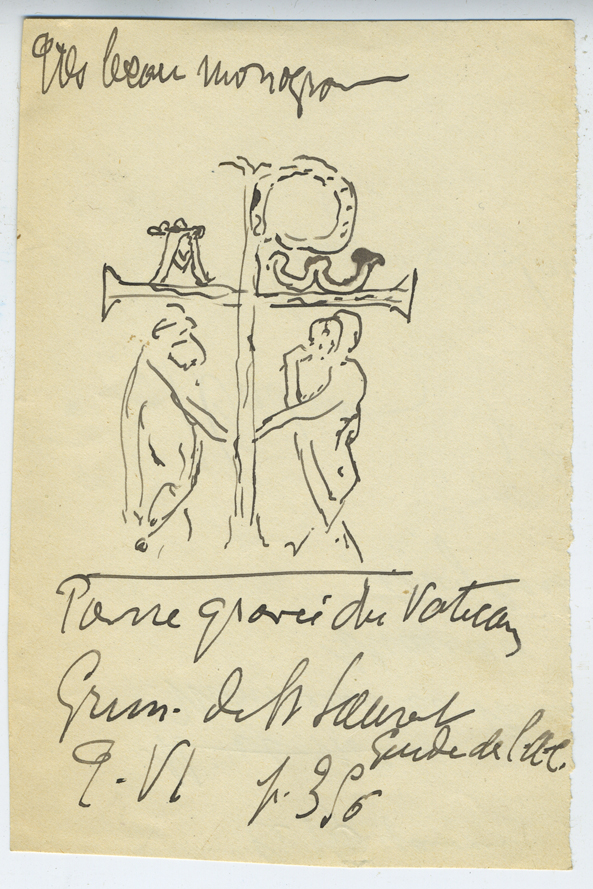 Très beau monogram
Pierre gravée du Vatican
Grim. de St Laurent
Guide de l'art
T. VI p. 356